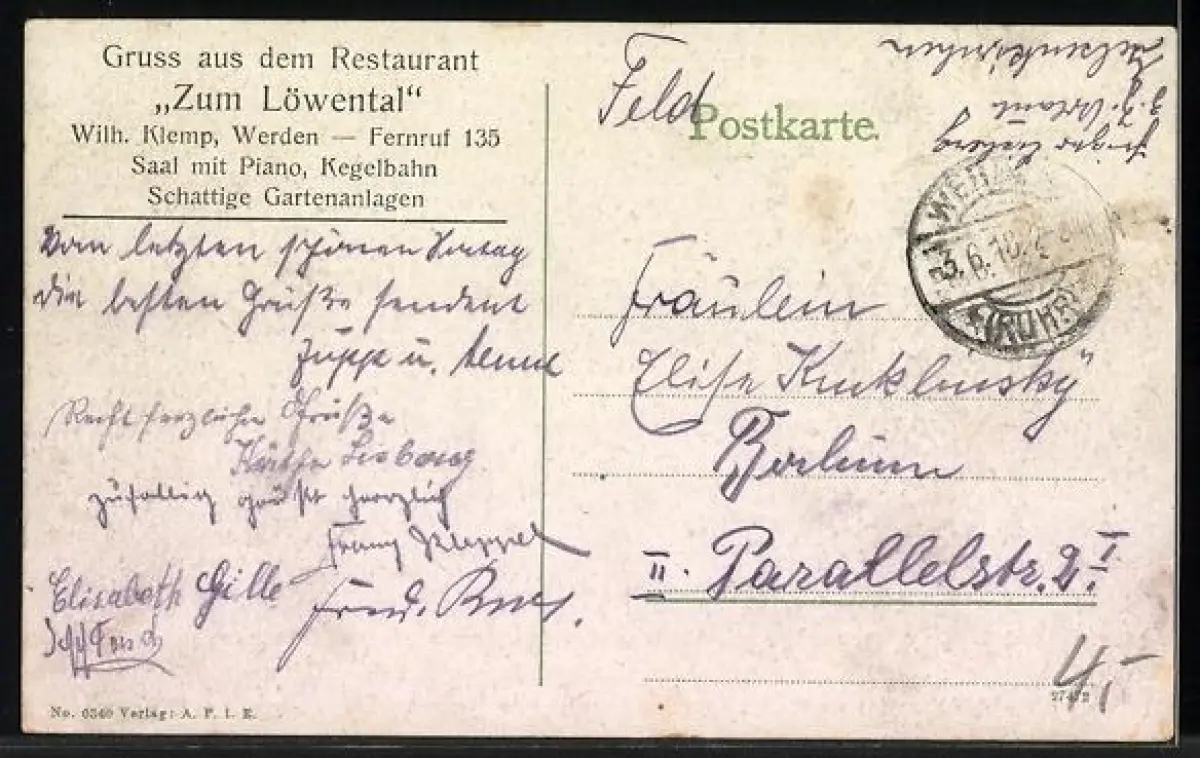 Gruss aus dem Restaurant
„Zum Löwental“
Wilh. Klemp, Werden — Fernruf 135
Saal mit Piano, Kegelbahn
Schattige Gartenanlagen
Vom letzten schönen
die besten Grüße sendent
Jupp u.
Recht herzliche Grüße
Käthe
zufällig grüßt herzlich
Franz
Elisabeth Gille
Fred.
No. 6340 Verlag: A. F. i. E.
Feld
Postkarte.
z. Z. Urlaub
Gelsenkirchen
(RUHR)
Fräulein
Elise Kuklinsky
Bochum
II. Parallelstr. 2 I.
4,-
27472